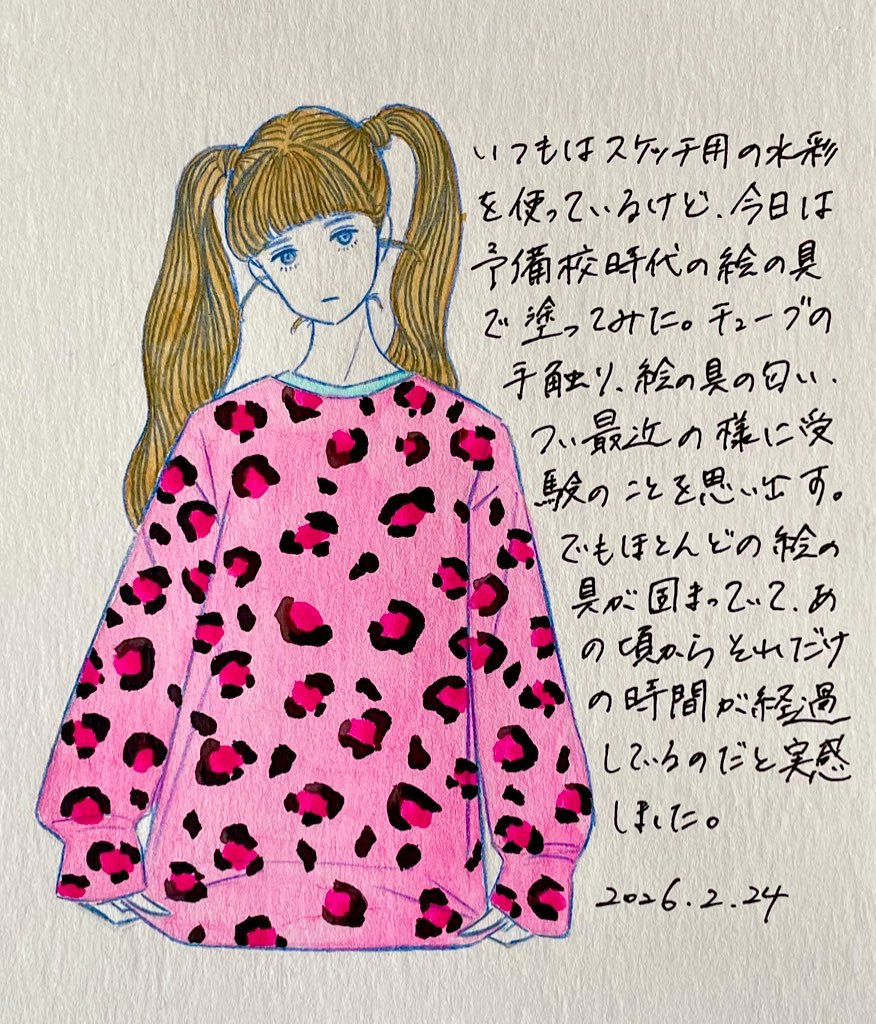 いつもはスケッチ用の水彩
を使っているけど、今日は
予備校時代の絵の具
で塗ってみた。チューブの
手触り、絵の具の匂い、
つい最近の様に受
験のことを思い出す。
でもほとんどの絵の
具が固まっていて、あ
の頃からそれだけ
の時間が経過
しているのだと実感
しました。
2026.2.24